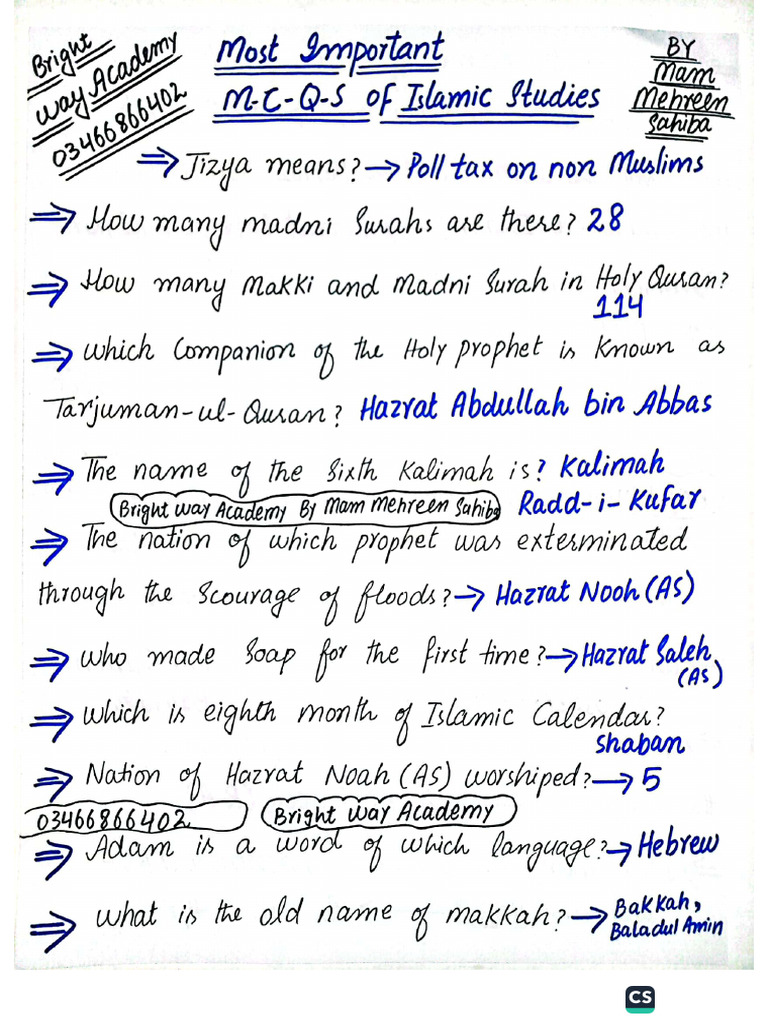 Bright
Way Academy
03466866402
Most Important
M-C-Q-S of Islamic Studies
BY
Mam
Mehreen
Sahiba
⇒ Jizya means? → Poll tax on non Muslims
⇒ How many madni Surahs are there? 28
⇒ How many Makki and Madni Surah in Holy Quran?
114
⇒ Which Companion of the Holy prophet is Known as
Tarjuman-ul-Quran? Hazrat Abdullah bin Abbas
⇒ The name of the Sixth Kalimah is? Kalimah
Bright way Academy By Mam Mehreen Sahiba
Radd-i-Kufar
⇒ The nation of which prophet was exterminated
through the Scourage of floods? → Hazrat Nooh (AS)
⇒ Who made Soap for the first time? → Hazrat Saleh
(AS)
⇒ Which is eighth month of Islamic Calendar?
Shaban
⇒ Nation of Hazrat Noah (AS) worshiped? → 5
03466866402
Bright Way Academy
⇒ Adam is a word of which language? → Hebrew
⇒ What is the old name of makkah? → Bakkah,
Baladul Amin
CS